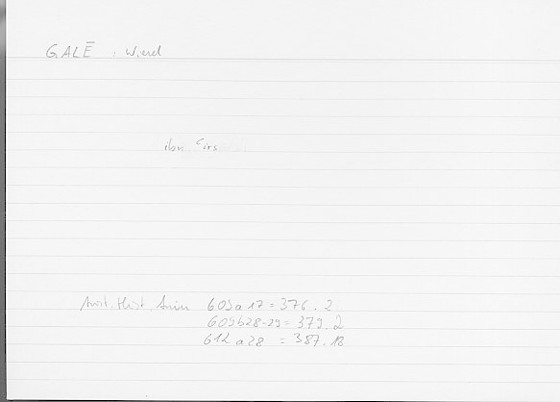 GALĒ : Wiesel
Arist. Hist. Anim 609a17 = 376.2
609b28-29 = 379.2
612a28 = 387.18